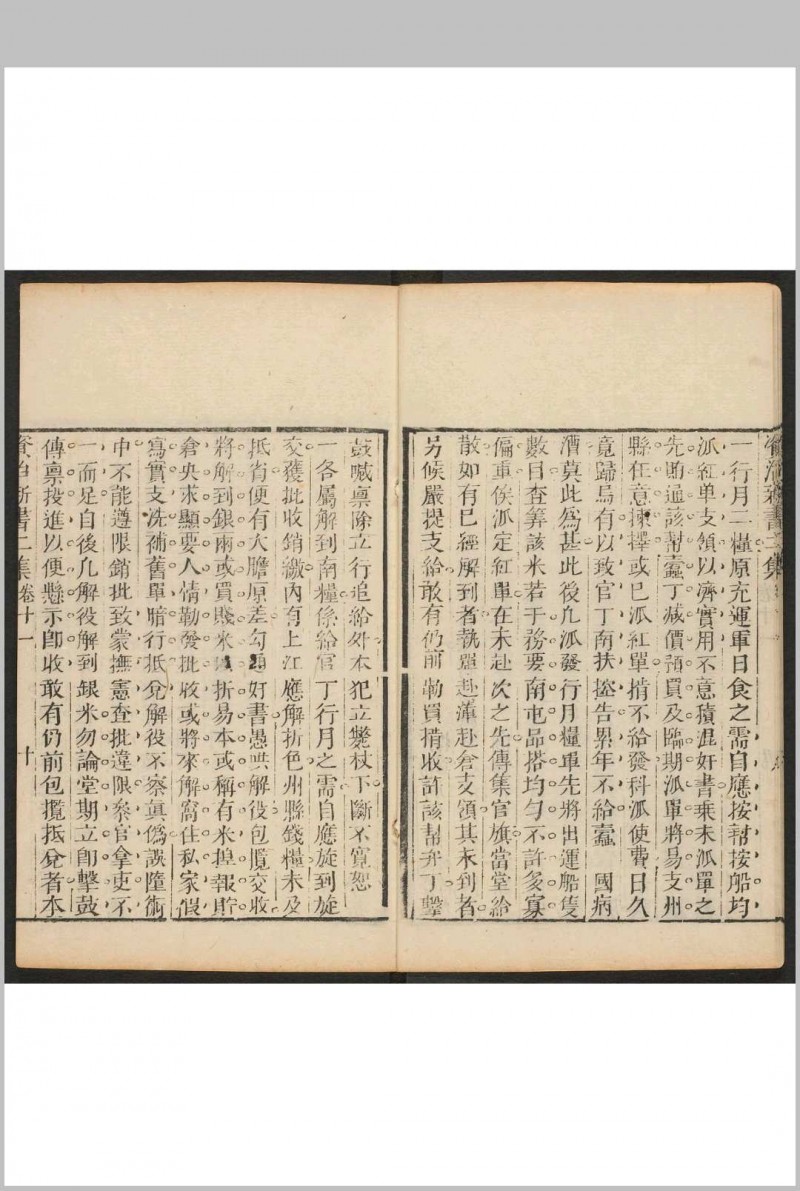 一行月二糧原充運軍日食之需自應按幇按船均
派紅单支領以濟實用不意積混奸書乘未派單之
先賄通該幇蠧丁減價預買及臨期派單將易支州
縣任意揀擇或巳派紅單措不給發科派使費日久
竟歸烏有以致官丁南扶控告累年不給蠧 國病
漕莫此為甚此後凡派發行月糧單先將出運船隻
數目查筭該米若于務要南屯品搭均勻不許多寡
偏重俟派定紅單在未赴次之先傳集官旗當堂給
散如有巳經解到者執單赴藩赴倉支領其未到者
另候嚴提支給敢有仍前勒買措收許該幇弁丁擊
鼓喊禀除立行追給外本犯立斃杖下斷不寛恕
一各屬解到南糧係給官丁行月之需自應旋到旋
交獲批收銷繳內有上江應解折色州縣錢糧未及
抵省便有大膽原差勾通奸書愚哄解役包攬交收
將解到銀兩或買賤米折易本或稱有米捏報貯
倉央求顯要人情勒發批收或將來解窩住私家假
寫實支洗補舊單暗行抵兌解役不察真偽誤墮術
中不能遵限銷批致蒙撫憲查批違限叅官拿吏不
一而足自後凡解役解到銀米勿論堂期立卽擊鼓
傳禀投進以便懸示卽收敢有仍前包攬抵兌者本
資治新書二集卷十一 十